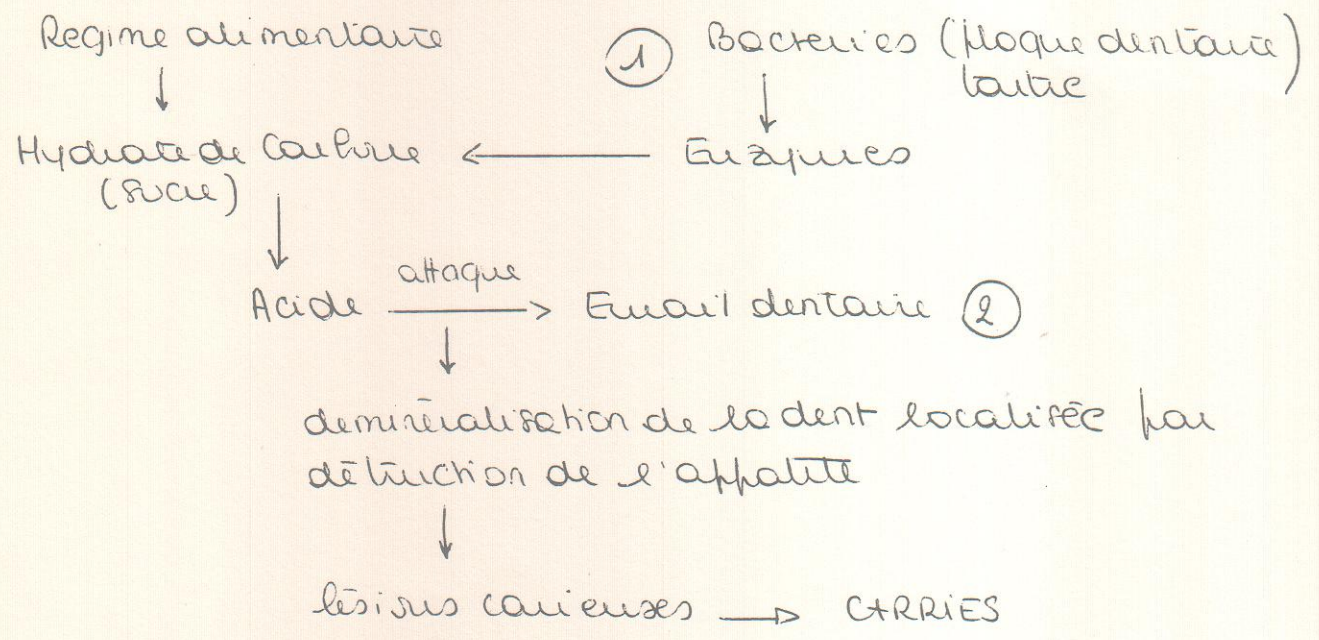 Regime alimentaire
① Bacteries (ploque dentaire)
tartre
Hydrate de Carbone
Enzymes
(sucre)
attaque
Acide
Email dentaire ②
demineralisation de la dent localisée par
détruction de l'appatite
lésions carieuses
CARRIES